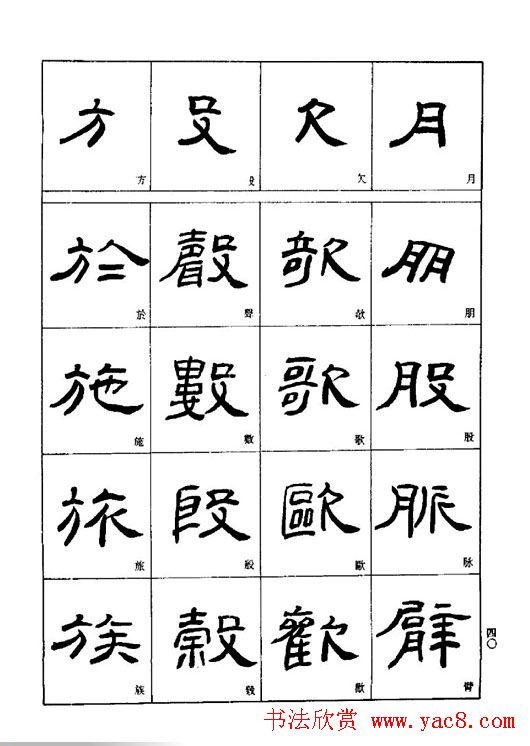 月 月
朋 朋
股 股
脈 脉
臂 臂
欠 欠
欹 欹
歌 歌
歐 歐
歡 歡
殳 殳
聲 聲
數 數
方 方
於 於
施 施
旅 旅
族 族
四〇
书法欣赏 www.yac8.com